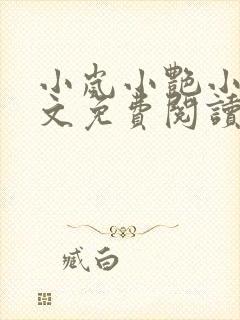 小岚小艷小
文免費閱讀
臧白